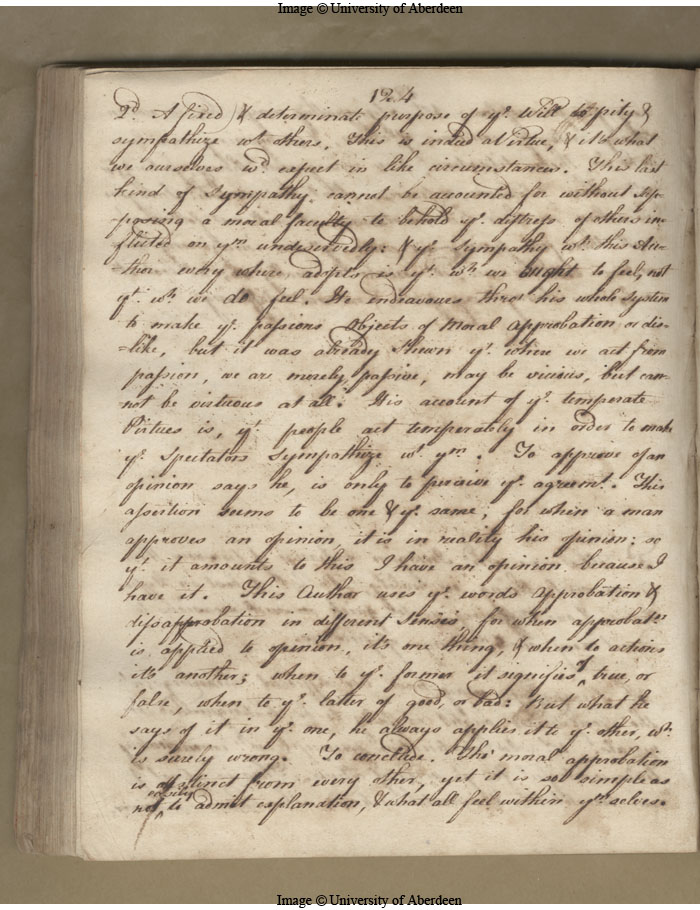 Image © University of Aberdeen
124
2d. A fixed & determinate purpose of ye. Will to pity &
sympathize wt. others. This is indeed a Virtue, & it's what
we ourselves wd. expect in like circumstances. This last
kind of Sympathy cannot be accounted for without sup-
-posing a moral faculty to behold ye. distress of others in-
flicted on ym. undeservedly: & ye. Sympathy wt. this Au-
-thor every where adopts is yt. wh. we ought to feel, not
yt. wh. we do feel. He endeavours thro' his whole System
to make ye. passions Objects of Moral approbation or dis-
-like, but it was already Shewn yt. where we act from
passion, we are merely passive, may be vicious, but can-
not be virtuous at all. His account of ye. temperate
Virtues is, yt. people act temperately in order to make
ye. Spectators Sympathize wt. ym. To approve of an
opinion says he, is only to perceive ye. agreemt. This
assertion seems to be one & ye. same, for when a man
approves an opinion, it is in reality his opinion; so
yt. it amounts to this I have an opinion because I
have it. This Author uses ye. words Approbation &
disapprobation in different Senses, for when approbatn.
is applied to opinion, it's one thing, & when to actions
it's another; when to ye. former it signifies of true, or
false, when to ye. latter of good, or bad: But what he
says of it in ye. one, he always applies it to ye. other, wh.
is surely wrong. To conclude. Tho' moral approbation
is distinct from every other, yet it is so simple as
not to admit explanation, & what all feel within ym. selves.
Image © University of Aberdeen